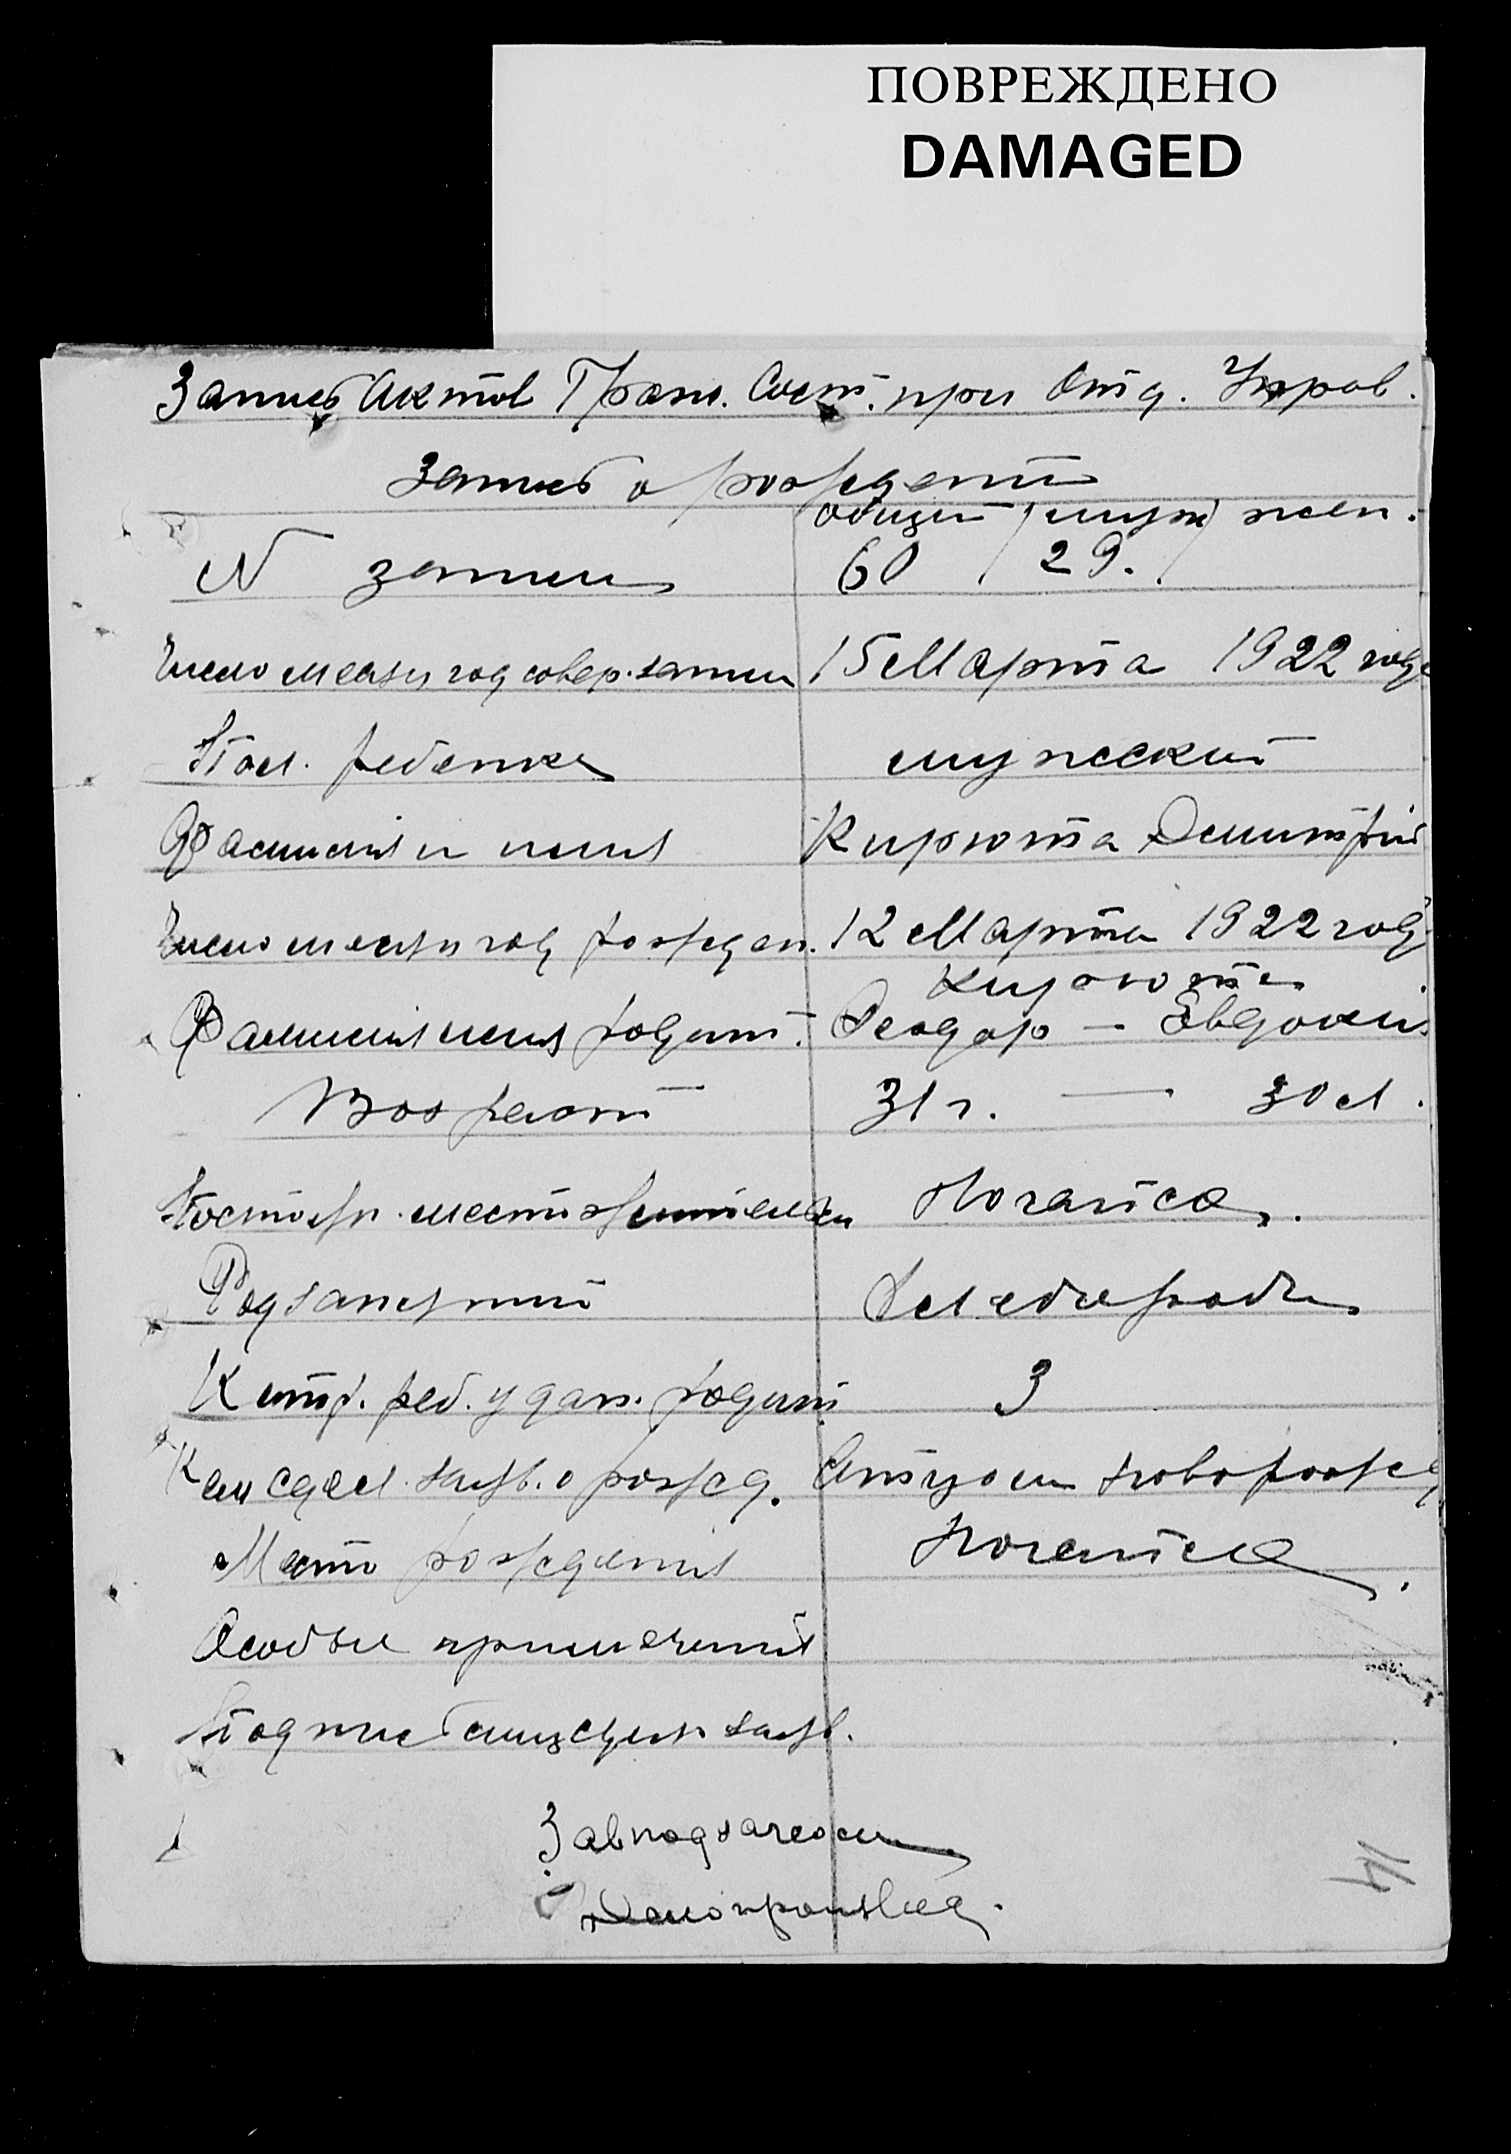 ПОВРЕЖДЕНО
DAMAGED
Запись Актов Граж. Сост. при Отд. Управ.
Запись о рождении
общий / муж / жен.
N записи 60 / 29. /
Число месяц год совер. записи 15 Марта 1922 года
Пол. ребенка мужеский
Фамилия и имя Кирюта Димитрий
Число месяц и год рожден. 12 Марта 1922 года
Кирюта
Фамилия имя родит. Феодор — Евдокия
Возраст 31 г. — 30 л.
Постоян. место жительства Ногайск.
Род занятий Хлебороб
К итгр. реб. у дан. родит 3
Кем сдел. заяв. о рожд. Отцом новорожд
Место рождения Ногайск.
Особые примечания
Подпись лиц сделав. заяв.
Завподзагсом
Делопроизвод.
14